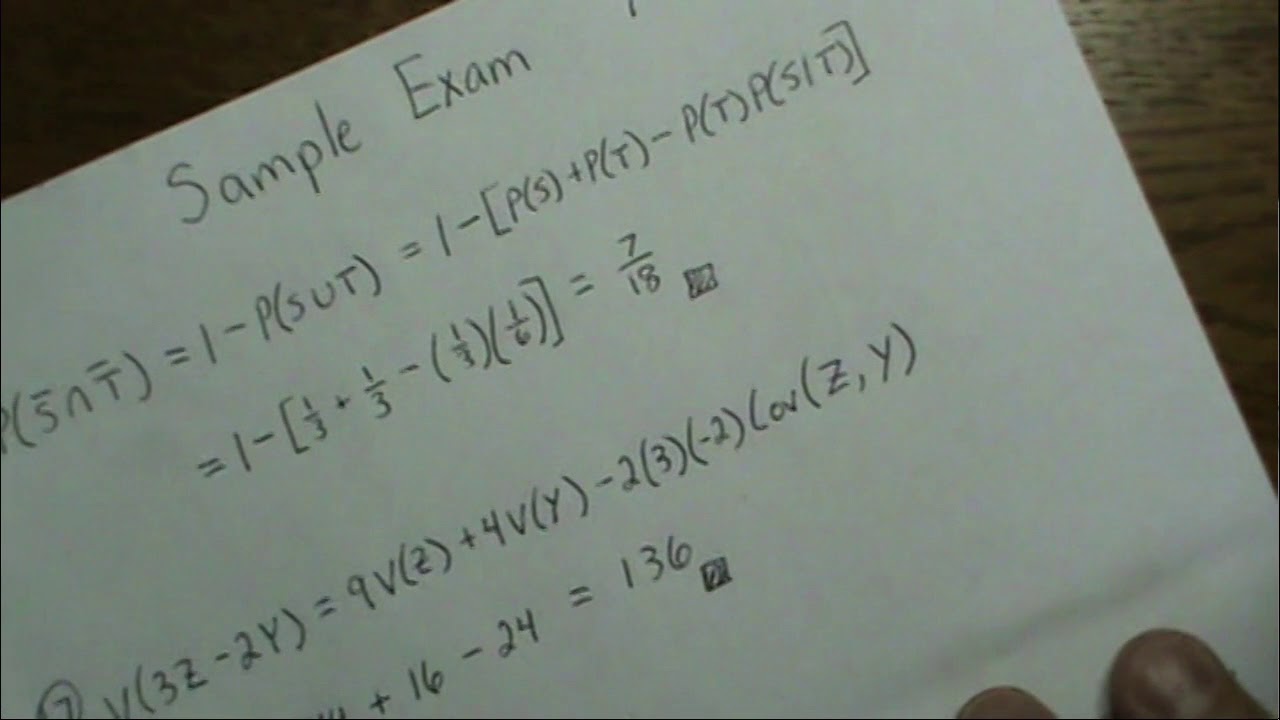 Sample Exam
P(S̅∩T̅) = 1-P(S∪T) = 1-[P(S)+P(T)-P(T)P(S|T)]
= 1-[1/3 + 1/3 - (1/3)(1/6)] = 7/18
⑦ V(3Z-2Y) = 9V(Z)+4V(Y)-2(3)(-2)Cov(Z,Y)
+ 16 - 24 = 136